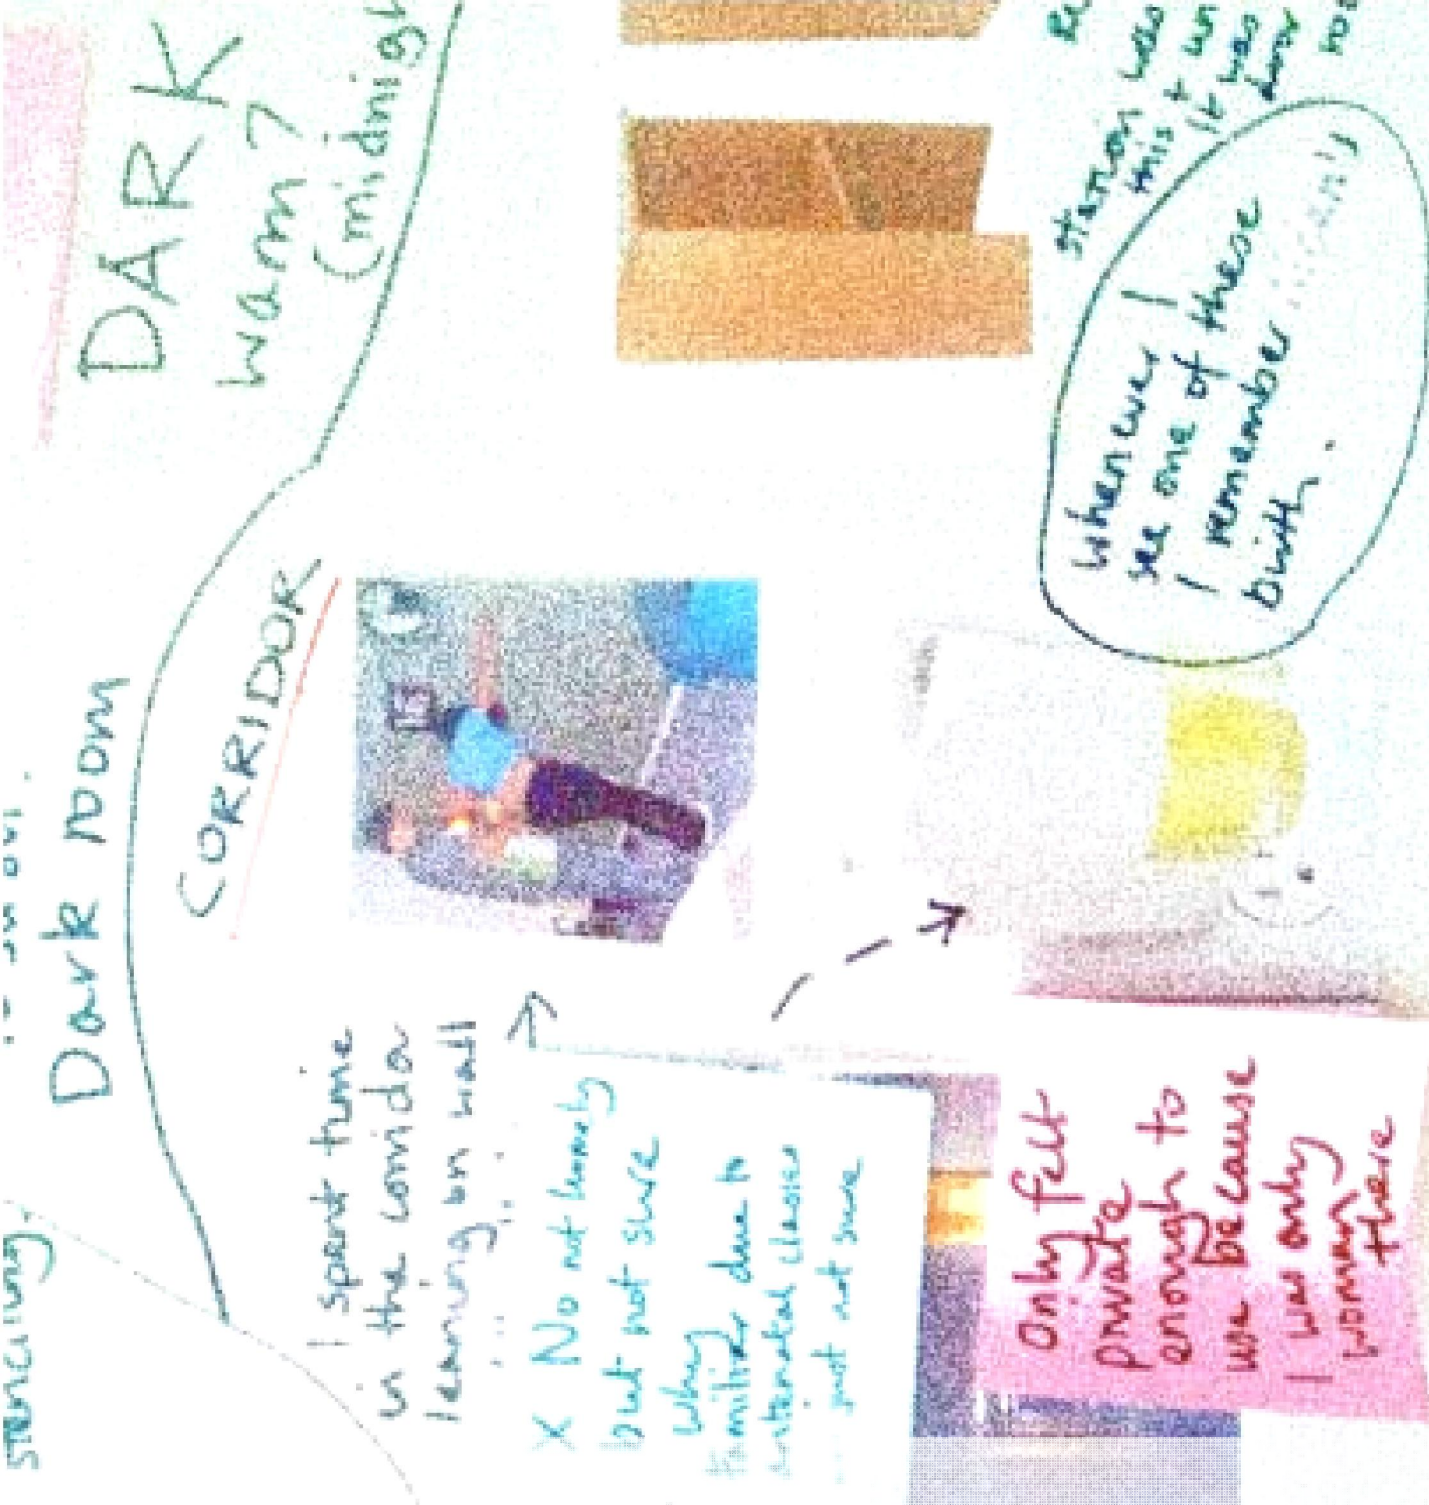 DARK
warm?
Dark room
CORRIDOR
I spent time
in the corridor
leaning on wall
X No not homely
but not sure
why
familiar due to
antenatal classes
just not sure
Only felt
private
enough to
use because
I was only
woman
there
whenever I
see one of these
I remember
birth.
this
it was